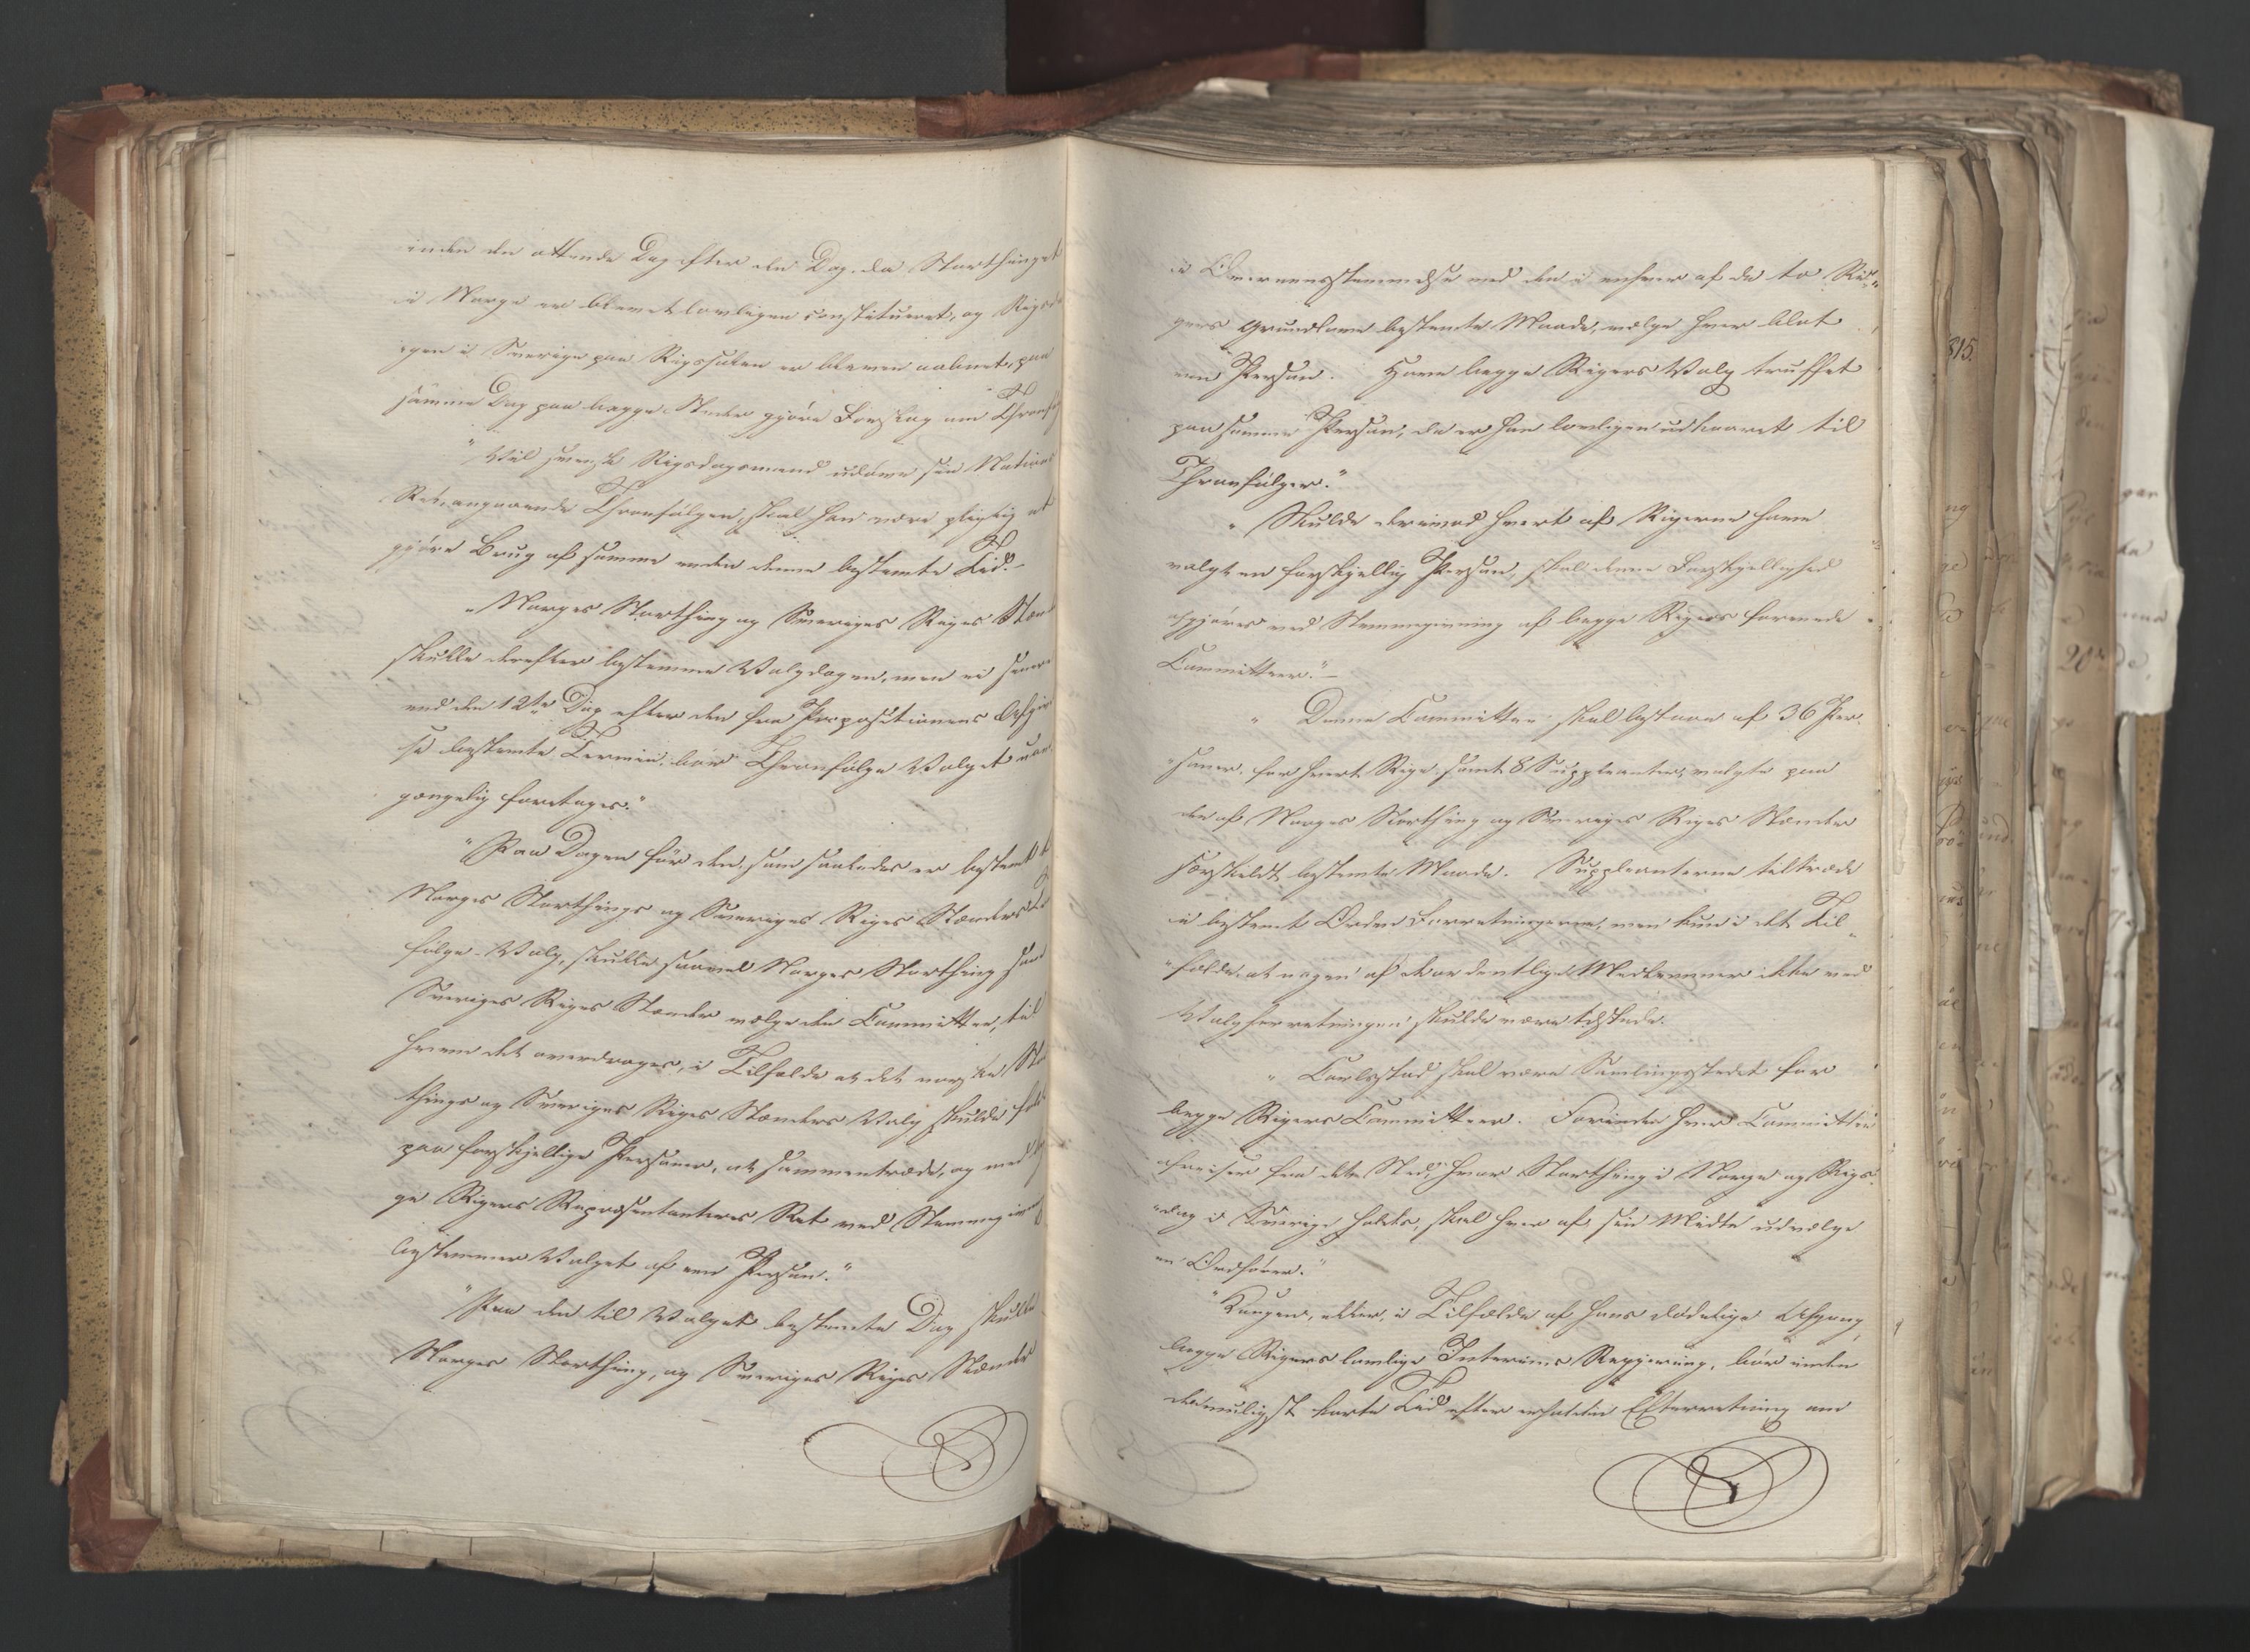 inden den ottende Dag efter den Dag, da Storthinget
i Norge er blevet lovligen constitueret, og Rigsda
gen i Sverige paa Rigssalen er bleven aabnet, paa
samme Dag paa begge Steder gjöre Forslag om Thronföl
"Vil svensk Rigsdagsmand udöve sin National
Ret, angaaende Thronfölgen, skal han være pligtig at
gjöre Brug af samme inden denne bestemte Tid."
"Norges Storthing og Sveriges Riges Stænd
skulle derefter bestemme Valgdagen, men ei senere
end den 12te Dag efter den fra Propositionens Afgivel
se bestemte Termin, bör Thronfölge Valget uom
gængelig foretages."
"Paa Dagen för den, som saaledes er bestemt t
Norges Storthings og Sveriges Riges Stænders Th
fölge-Valg, skulle saavel Norges Storthing som
Sveriges Riges Stænder vælge den Committee, til
hvem det overdrages, i Tilfælde at det norske Stor
things og Sveriges Riges Stænders Valg skulde falde
paa forskjellige Personer, at sammentræde, og med
ge Rigers Repræsentanteres Ret ved Stemmegivning
bestemmer Valget af een Person."
"Paa den til Valget bestemte Dag skulle
Norges Storthing, og Sveriges Riges Stænder
i Overeensstemmelse med den i enhver af de to Ri"
gers Grundlove bestemte Maade, vælge hver blot
een Person. Have begge Rigers Valg truffet
paa samme Person, da er han lovligen udkaaret til
Thronfölger."
"Skulde derimod hvert af Rigerne have
valgt en forskjellig Person, skal denne Forskjellighed
afgjöres ved Stemmegivning af begge Rigers forenede
Committeer."
"Denne Committee skal bestaae af 36 Per-
"soner, for hvert Rige, samt 8 Suppleanter, valgte paa
den af Norges Storthing og Sveriges Riges Stænder
særskildt bestemte Maade. Suppleanterne tiltræde
i bestemt Orden Forretningerne, men kun i det Til"
"fælde, at nogen af de ordentlige Medlemmer ikke ved
Valgforretningen skulde være tilstede.
"Carlsstad skal være Samlingsstedet for
begge Rigers Committeer. Forinden hver Committee
afreiser fra dette Sted, hvor Storthing i Norge og Rigs
"dag i Sverige holdes, skal hver af sin Midte udvælge
en Ordförer."
"Kongen, eller, i Tilfælde af hans dödelige Afgang,
begge Rigers lovlige Interims Regjering, bör inden
den muligst korte Tid efter erholden Efterretning om
815.
20de